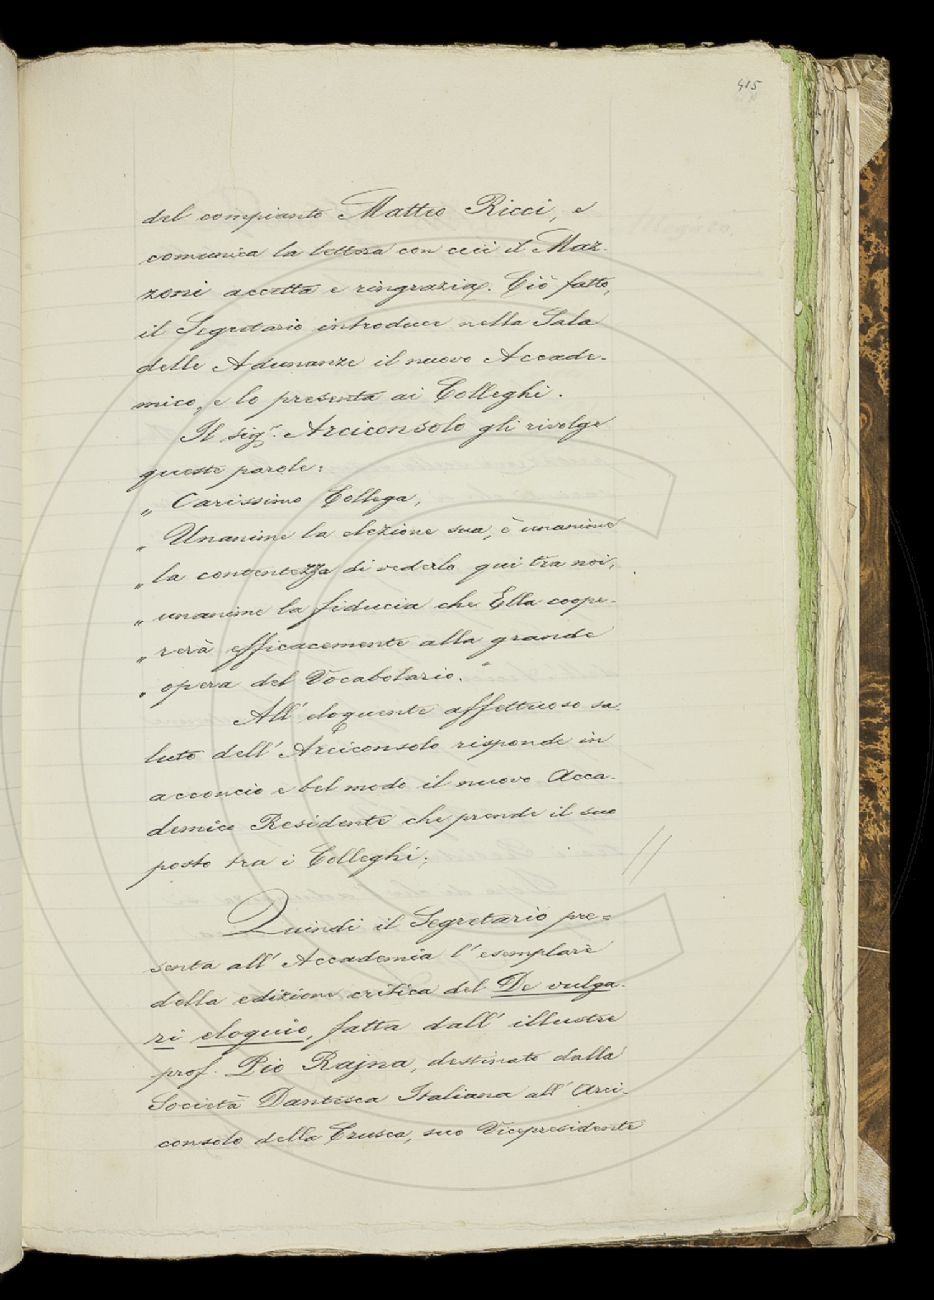 415
del compianto Matteo Ricci, e
comunica la lettera con cui il Maz-
zoni accetta e ringrazia. Ciò fatto,
il Segretario introduce nella Sala
delle Adunanze il nuovo Accade-
mico, e lo presenta ai Colleghi.
Il sigr. Arciconsolo gli rivolge
queste parole:
„ Carissimo Collega,
„ Unanime la elezione sua, è unanime
„ la contentezza di vederla qui tra noi,
„ unanime la fiducia che Ella coope-
„ rerà efficacemente alla grande
„ opera del Vocabolario."
All' eloquente affettuoso sa-
luto dell' Arciconsolo risponde in
acconcio e bel modo il nuovo Acca-
demico Residente che prende il suo
posto tra i Colleghi.
Quindi il Segretario pre=
senta all' Accademia l' esemplare
della edizione critica del De vulga-
ri eloquio, fatta dall' illustre
prof. Pio Rajna, destinato dalla
Società Dantesca Italiana all' Arci-
consolo della Crusca, suo Vicepresidente